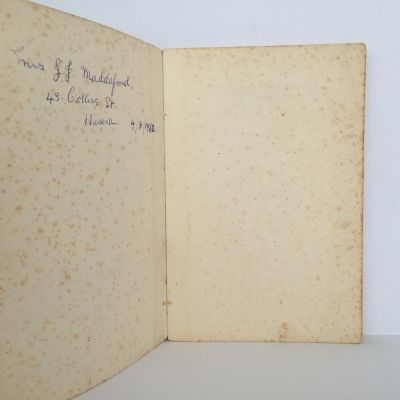 Mrs J J Maddaford,
43 Collins St.
Hawera. 9/8/1962